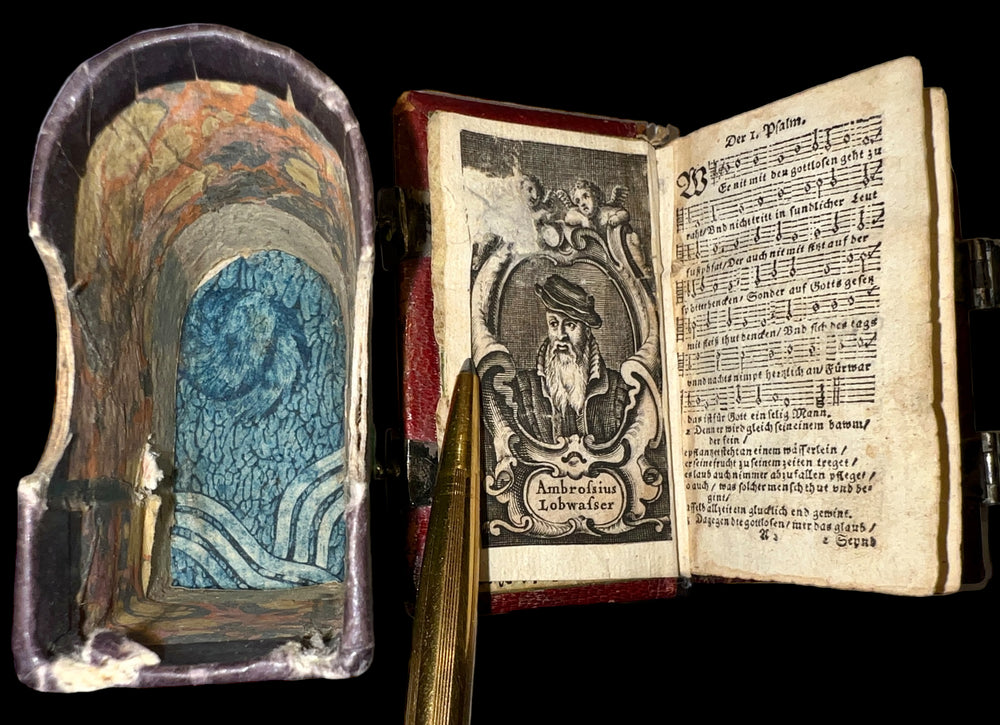 Ambrosius
Lobwasser
Der 1. Psalm.
WEr nit mit den gottlosen geht zu
raht/ Vnd nicht tritt in sundlicher Leut
fußpfat/ Der auch nit mit sitzt auf der
spötter bencken/ Sonder auf Gotts gesetz
mit fleiß thut dencken/ Vnd sich des tags
vnnd nachts nimpt hertzlich an/ Fürwar
das ist für Gott ein selig Mann.
2 Denn er wird gleich sein einem bawm/
der fein/
epflantzt steht an einem wässerlein/
er seine frucht zu seinen zeiten treget/
s laub auch nimmer abzufallen pfleget/
o auch/ was solcher mensch thut vnd be-
gint/
allzeit ein glucklich end gewint.
Dagegen die gottlosen/ mer das glaub/
A 2 Seynd